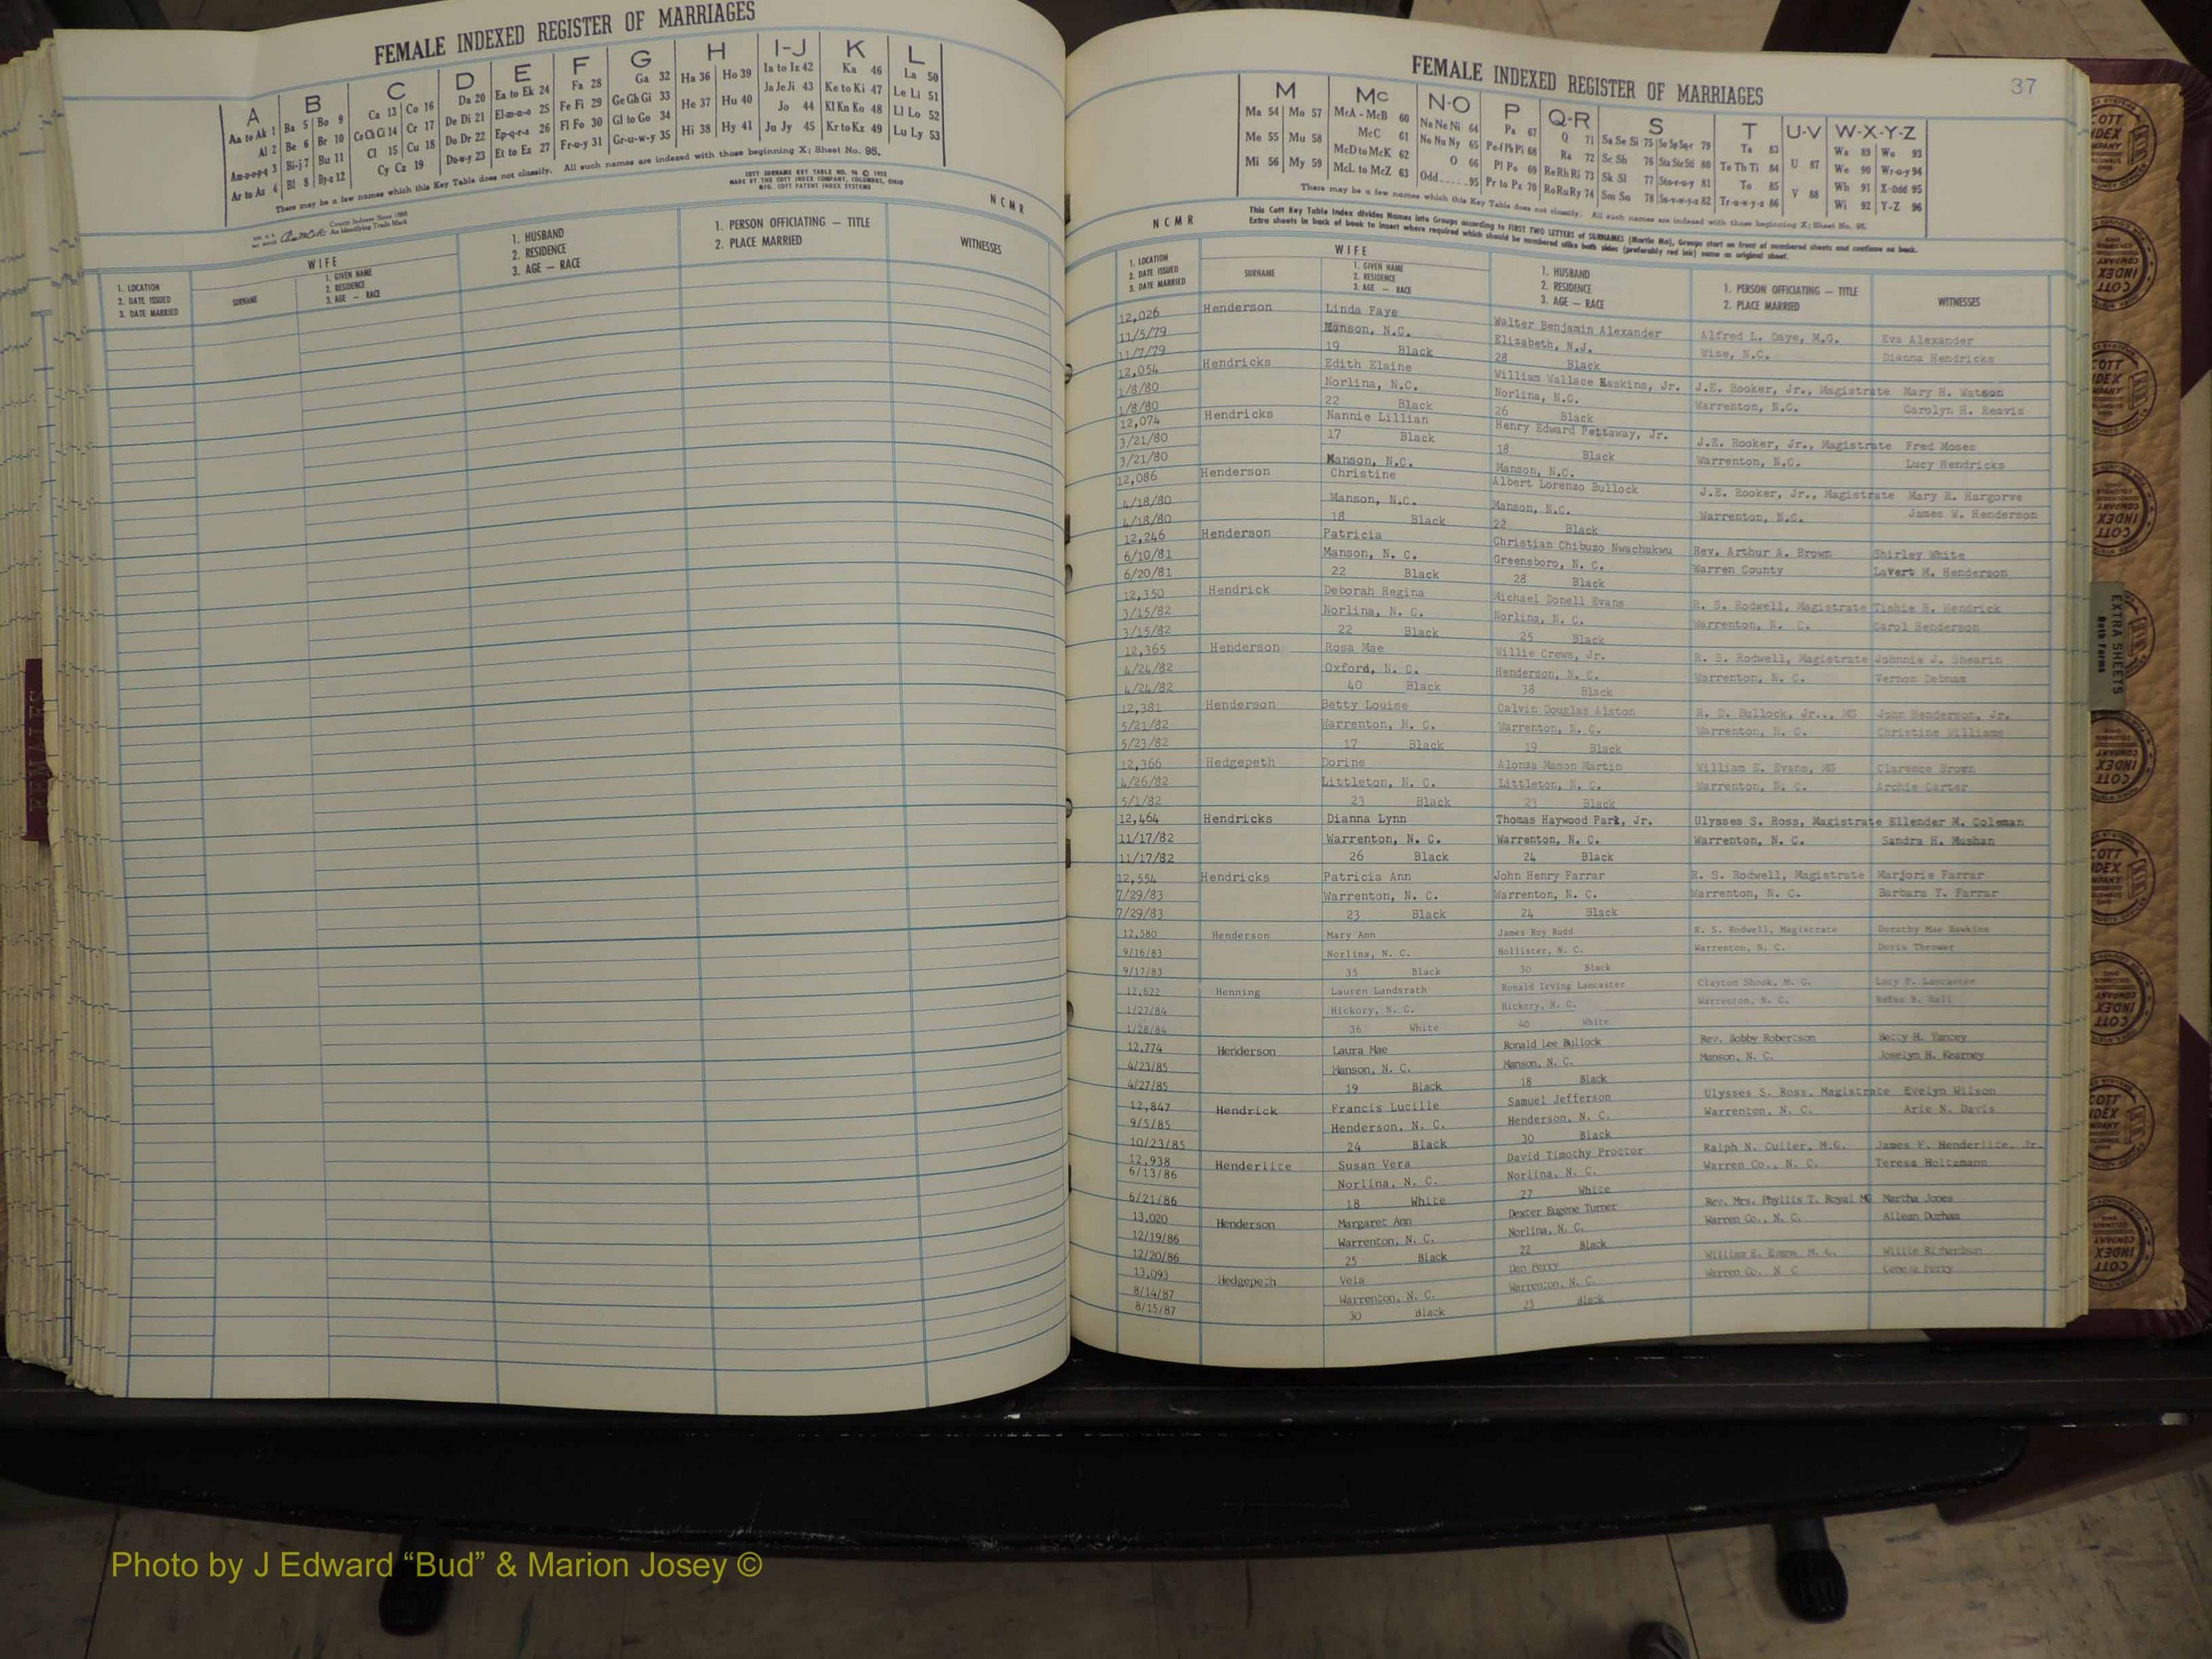 FEMALE INDEXED REGISTER OF MARRIAGES
A B C D E F G H I-J K L
Aa to Ak 1 Ba 5 Bo 9 Ca 13 Co 16 Da 20 Ea to Ek 24 Fa 28 Ga 32 Ha 36 Ho 39 Ia to Iz 42 Ka 46 La 50
Al 2 Be 6 Br 10 Ce Ch Ci 14 Cr 17 De Di 21 El-m-n-o 25 Fe Fi 29 Ge Gh Gi 33 He 37 Hu 40 Ja Je Ji 43 Ke to Ki 47 Le Li 51
Am-o-p-q 3 Bi-j 7 Bu 11 Cl 15 Cu 18 Do Dr 22 Ep-q-r-s 26 Fl Fo 30 Gl to Go 34 Hi 38 Hy 41 Jo 44 Kl Kn Ko 48 Ll Lo 52
Ar to Az 4 Bl 8 By-z 12 Cy Cz 19 Du-w-y 23 Et to Ez 27 Fr-u-y 31 Gr-u-w-y 35 Ju Jy 45 Kr to Kz 49 Lu Ly 53
There may be a few names which this Key Table does not classify. All such names are indexed with those beginning X; Sheet No. 95.
COTT SURNAME KEY TABLE NO. 96 © 1952
MADE BY THE COTT INDEX COMPANY, COLUMBUS, OHIO
MFG. COTT PATENT INDEX SYSTEMS
County Indexes Since 1888
An Identifying Trade Mark
NCMR
1. LOCATION
2. DATE ISSUED
3. DATE MARRIED
WIFE
SURNAME
1. GIVEN NAME
2. RESIDENCE
3. AGE — RACE
1. HUSBAND
2. RESIDENCE
3. AGE — RACE
1. PERSON OFFICIATING — TITLE
2. PLACE MARRIED
WITNESSES
FEMALES
FEMALE INDEXED REGISTER OF MARRIAGES
37
M Mc N-O P Q-R S T U-V W-X-Y-Z
Ma 54 Mo 57 McA - McB 60 Na Ne Ni 64 Pa 67 Q 71 Sa Se Si 75 Se Sp Sq-r 79 Ta 83 U 87 Wa 89 Wo 93
Me 55 Mu 58 McC 61 No Nu Ny 65 Pe-f Ph Pi 68 Ra 72 Sc Sh 76 Sta Ste S6 80 Te Th Ti 84 V 88 We 90 Wr-u-y 94
Mi 56 My 59 McD to McK 62 O 66 Pl Po 69 Re Rh Ri 73 Sk Sl 77 Sto-r-u-y 81 To 85 Wh 91 X-Odd 95
McL to McZ 63 Odd 95 Pr to Pz 70 Ro Ru Ry 74 Sm Sn 78 Su-v-w-y-z 82 Tr-u-w-y-z 86 Wi 92 Y-Z 96
There may be a few names which this Key Table does not classify. All such names are indexed with those beginning X; Sheet No. 95.
This Cott Key Table Index divides Names into Groups according to FIRST TWO LETTERS of SURNAMES (Martin Ma), Groups start on front of numbered sheets and continue on back.
Extra sheets in back of book to insert where required which should be numbered alike both sides (preferably red ink) same as original sheet.
NCMR
1. LOCATION
2. DATE ISSUED
3. DATE MARRIED
WIFE
SURNAME
1. GIVEN NAME
2. RESIDENCE
3. AGE — RACE
1. HUSBAND
2. RESIDENCE
3. AGE — RACE
1. PERSON OFFICIATING — TITLE
2. PLACE MARRIED
WITNESSES
12,026 Henderson Linda Faye Walter Benjamin Alexander Alfred L. Daye, M.G. Eva Alexander
11/5/79 Manson, N.C. Elizabeth, N.J. Wise, N.C. Dianna Hendricks
11/7/79 19 Black 28 Black
12,054 Hendricks Edith Elaine William Wallace Haskins, Jr. J.E. Rooker, Jr., Magistrate Mary H. Watson
1/8/80 Norlina, N.C. Norlina, N.C. Warrenton, N.C. Carolyn H. Reavis
1/8/80 22 Black 26 Black
12,074 Hendricks Nannie Lillian Henry Edward Pettaway, Jr. J.E. Rooker, Jr., Magistrate Fred Moses
3/21/80 17 Black 18 Black Warrenton, N.C. Lucy Hendricks
3/21/80 Manson, N.C. Manson, N.C.
12,086 Henderson Christine Albert Lorenzo Bullock J.E. Rooker, Jr., Magistrate Mary R. Hargorve
4/18/80 Manson, N.C. Manson, N.C. Warrenton, N.C. James W. Henderson
4/18/80 18 Black 22 Black
12,246 Henderson Patricia Christian Chibuzo Nwachukwu Rev. Arthur A. Brown Shirley White
6/10/81 Manson, N. C. Greensboro, N. C. Warren County LaVert M. Henderson
6/20/81 22 Black 28 Black
12,350 Hendrick Deborah Regina Michael Donell Evans R. S. Rodwell, Magistrate Tishie H. Hendrick
3/15/82 Norlina, N. C. Norlina, N. C. Warrenton, N. C. Carol Henderson
3/15/82 22 Black 25 Black
12,365 Henderson Rosa Mae Willie Crews, Jr. R. S. Rodwell, Magistrate Johnnie J. Shearin
4/24/82 Oxford, N. C. Henderson, N. C. Warrenton, N. C. Vernon Debnam
4/24/82 40 Black 38 Black
12,381 Henderson Betty Louise Calvin Douglas Alston R. D. Bullock, Jr.., MG John Henderson, Jr.
5/21/82 Warrenton, N. C. Warrenton, N. C. Warrenton, N. C. Christine Williams
5/23/82 17 Black 19 Black
12,366 Hedgepeth Dorine Alonza Mason Martin William E. Evans, MG Clarence Brown
4/26/82 Littleton, N. C. Littleton, N. C. Warrenton, N. C. Archie Carter
5/1/82 23 Black 23 Black
12,464 Hendricks Dianna Lynn Thomas Haywood Park, Jr. Ulysses S. Ross, Magistrate Ellender M. Coleman
11/17/82 Warrenton, N. C. Warrenton, N. C. Warrenton, N. C. Sandra H. Mushan
11/17/82 26 Black 24 Black
12,554 Hendricks Patricia Ann John Henry Farrar R. S. Rodwell, Magistrate Marjorie Farrar
7/29/83 Warrenton, N. C. Warrenton, N. C. Warrenton, N. C. Barbara Y. Farrar
7/29/83 23 Black 24 Black
12,580 Henderson Mary Ann James Roy Rudd R. S. Rodwell, Magistrate Dorothy Mae Hawkins
9/16/83 Norlina, N. C. Hollister, N. C. Warrenton, N. C. Doris Thrower
9/17/83 35 Black 30 Black
12,622 Henning Lauren Landsrath Ronald Irving Lancaster Clayton Shook, M. G. Lucy P. Lancaster
1/27/84 Hickory, N. C. Hickory, N. C. Warrenton, N. C. Rufus B. Hall
1/28/84 36 White 40 White
12,774 Henderson Laura Mae Ronald Lee Bullock Rev. Bobby Robertson Betty H. Yancey
4/23/85 Manson, N. C. Manson, N. C. Manson, N. C. Joselyn H. Kearney
4/27/85 19 Black 18 Black
12,847 Hendrick Francis Lucille Samuel Jefferson Ulysses S. Ross, Magistrate Evelyn Wilson
9/5/85 Henderson, N. C. Henderson, N. C. Warrenton, N. C. Arie N. Davis
10/23/85 24 Black 30 Black
12,938 Henderlite Susan Vera David Timothy Proctor Ralph N. Culler, M.G. James F. Henderlite, Jr.
6/13/86 Norlina, N. C. Norlina, N. C. Warren Co., N. C. Teresa Holtzmann
6/21/86 18 White 27 White
13,020 Henderson Margaret Ann Dexter Eugene Turner Rev. Mrs. Phyllis T. Royal MG Martha Jones
12/19/86 Warrenton, N. C. Norlina, N. C. Warren Co., N. C. Allean Durham
12/20/86 25 Black 22 Black
13,093 Hedgepeth Vela Dan Perry William E. Evans M. G. Willie Richardson
8/14/87 Warrenton, N. C. Warrenton, N. C. Warren Co. N C Geneva Perry
8/15/87 30 Black 23 Black
EXTRA SHEETS
Both Forms
Photo by J Edward “Bud” & Marion Josey ©